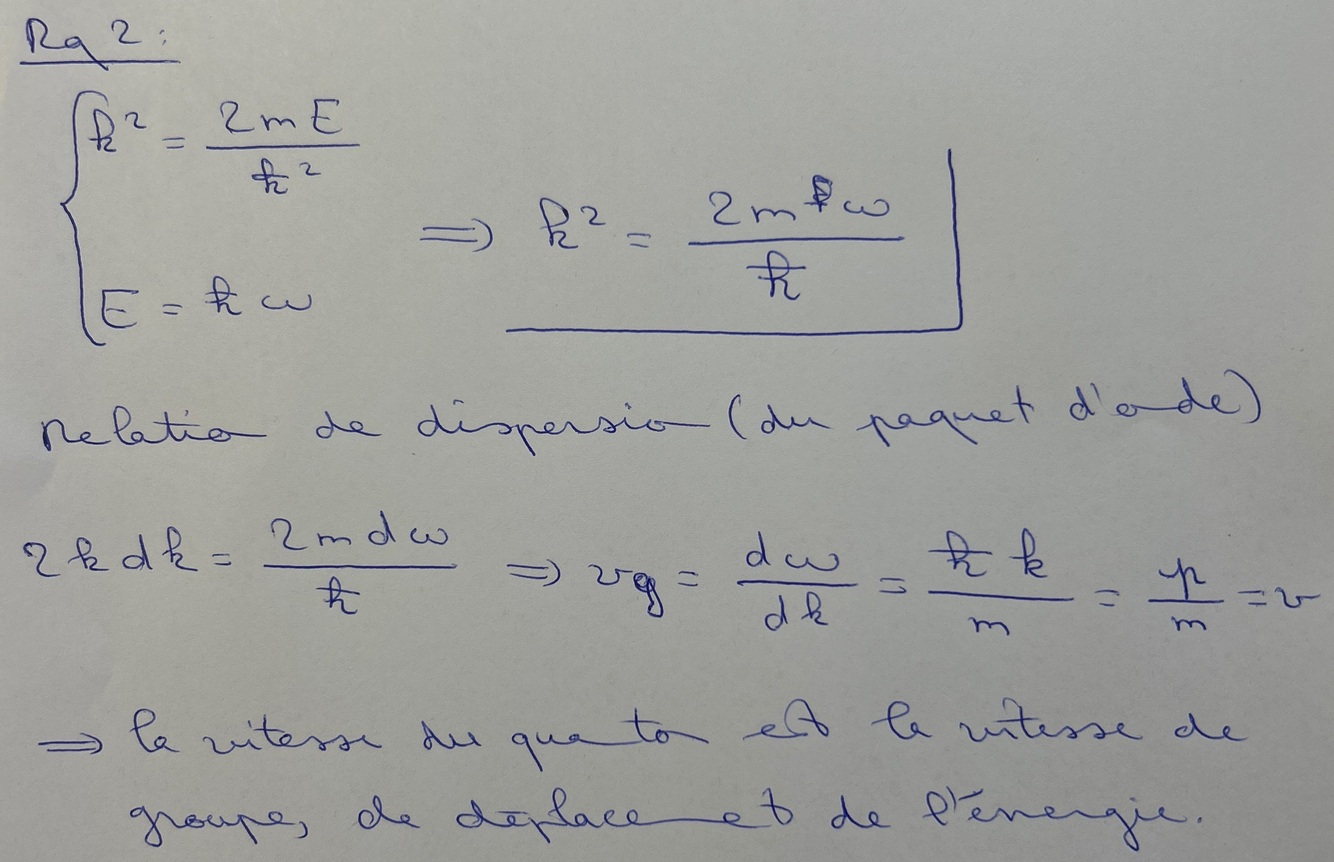 Rq 2 :
k² = 2mE / ħ²
E = ħω
⇒ k² = 2mω / ħ
relation de dispersion (du paquet d'onde)
2k dk = 2m dω / ħ ⇒ vg = dω / dk = ħk / m = p / m = v
⇒ la vitesse du quanton est la vitesse de
groupe, de déplacement de l'énergie.